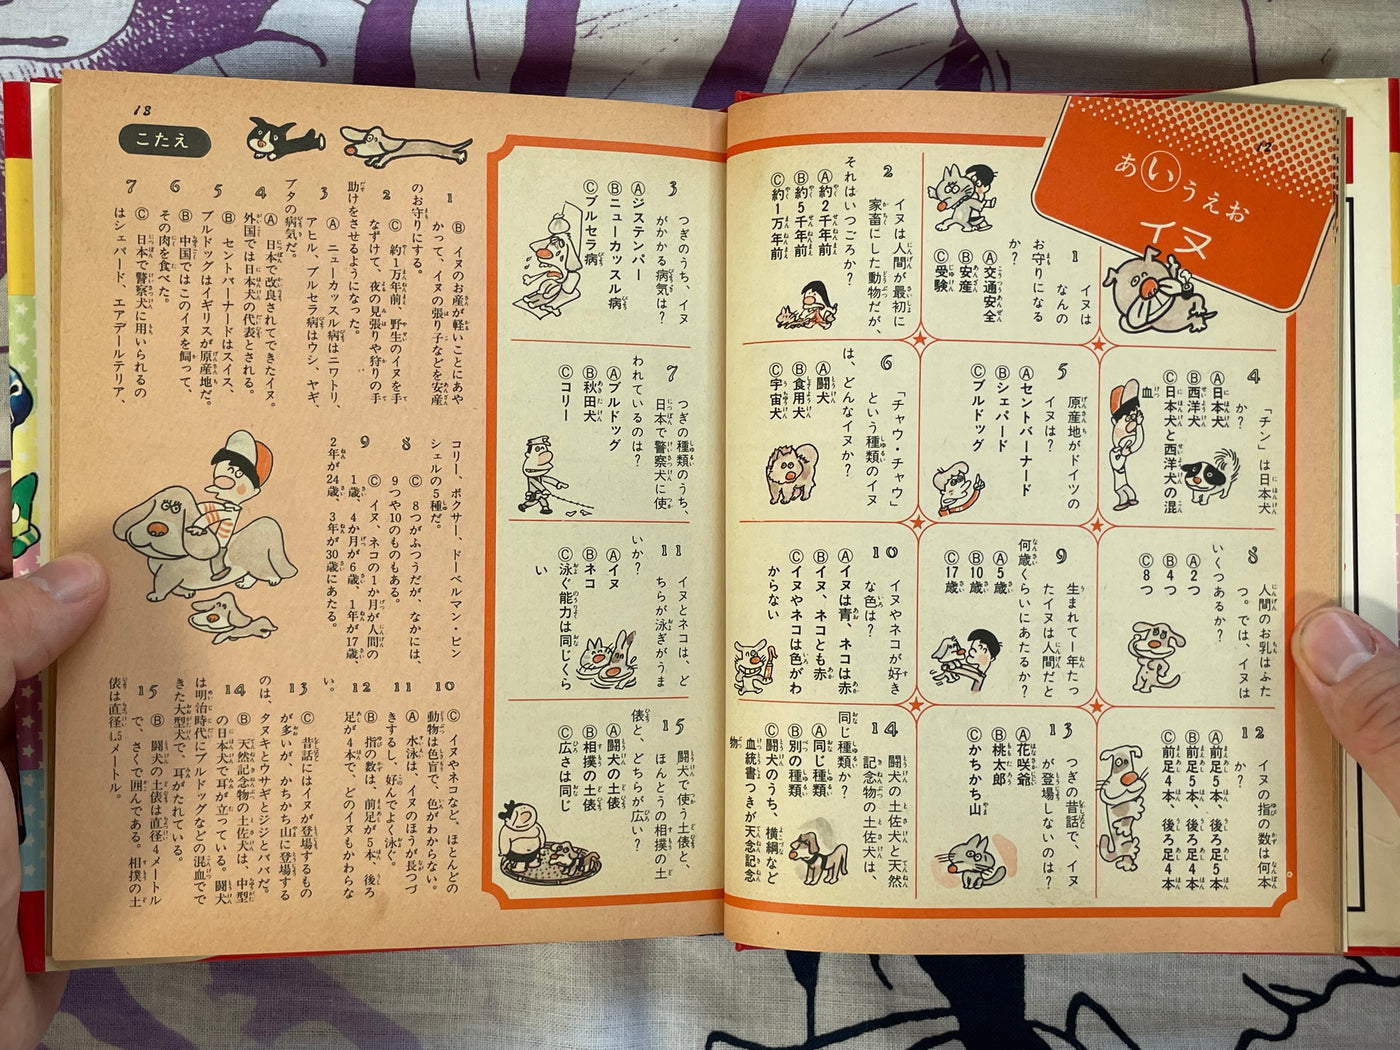 12
あいうえお
イヌ
1 イヌは
なんの
お守りになる
か?
Ⓐ交通安全
Ⓑ安産
Ⓒ受験
2 イヌは人間が最初に
家畜にした動物だが、
それはいつごろか?
Ⓐ約2千年前
Ⓑ約5千年前
Ⓒ約1万年前
3 つぎのうち、イヌ
がかかる病気は?
Ⓐジステンパー
Ⓑニューカッスル病
Ⓒブルセラ病
4 「チン」は日本犬
か?
Ⓐ日本犬
Ⓑ西洋犬
Ⓒ日本犬と西洋犬の混
血
5 原産地がドイツの
イヌは?
Ⓐセントバーナード
Ⓑシェパード
Ⓒブルドッグ
6 「チャウ・チャウ」
という種類のイヌ
は、どんなイヌか?
Ⓐ闘犬
Ⓑ食用犬
Ⓒ宇宙犬
7 つぎの種類のうち、
日本で警察犬に使
われているのは?
Ⓐブルドッグ
Ⓑ秋田犬
Ⓒコリー
8 人間のお乳はふた
つ。では、イヌは
いくつあるか?
Ⓐ2つ
Ⓑ4つ
Ⓒ8つ
9 生まれて1年たっ
たイヌは人間だと
何歳くらいにあたるか?
Ⓐ5歳
Ⓑ10歳
Ⓒ17歳
10 イヌやネコが好き
な色は?
Ⓐイヌは青、ネコは赤
Ⓑイヌ、ネコとも赤
Ⓒイヌやネコは色がわ
からない
11 イヌとネコは、ど
ちらが泳ぎがうま
いか?
Ⓐイヌ
Ⓑネコ
Ⓒ泳ぐ能力は同じくら
い
12 イヌの指の数は何本
か?
Ⓐ前足5本、後ろ足5本
Ⓑ前足5本、後ろ足4本
Ⓒ前足4本、後ろ足4本
13 つぎの昔話で、イヌ
が登場しないのは?
Ⓐ花咲爺
Ⓑ桃太郎
Ⓒかちかち山
14 闘犬の土佐犬と天然
記念物の土佐犬は、
同じ種類か?
Ⓐ同じ種類
Ⓑ別の種類
Ⓒ闘犬のうち、横綱など
血統書つきが天念記念
物
15 闘犬で使う土俵と、
ほんとうの相撲の土
俵と、どちらが広い?
Ⓐ闘犬の土俵
Ⓑ相撲の土俵
Ⓒ広さは同じ
18
こたえ
1 Ⓑ イヌのお産が軽いことにあや
かって、イヌの張り子などを安産
のお守りにする。
2 Ⓒ 約1万年前、野生のイヌを手
なずけて、夜の見張りや狩りの手
助けをさせるようになった。
3 Ⓐ ニューカッスル病はニワトリ、
アヒル、ブルセラ病はウシ、ヤギ、
ブタの病気だ。
4 Ⓐ 日本で改良されてできたイヌ。
外国では日本犬の代表とされる。
5 Ⓑ セントバーナードはスイス、
ブルドッグはイギリスが原産地だ。
6 Ⓑ 中国ではこのイヌを飼って、
その肉を食べた。
7 Ⓒ 日本で警察犬に用いられるの
はシェパード、エアデールテリア、
コリー、ボクサー、ドーベルマン・ピン
シェルの5種だ。
8 Ⓒ 8つがふつうだが、なかには、
9つや10のものもある。
9 Ⓒ イヌ、ネコの1か月が人間の
1歳、4か月が6歳、1年が17歳、
2年が24歳、3年が30歳にあたる。
10 Ⓒ イヌやネコなど、ほとんどの
動物は色盲で、色がわからない。
11 Ⓐ 水泳は、イヌのほうが長つづ
きするし、好んでよく泳ぐ。
12 Ⓑ 指の数は、前足が5本、後ろ
足が4本で、どのイヌもかわらな
い。
13 Ⓒ 昔話にはイヌが登場するもの
が多いが、かちかち山に登場する
のは、タヌキとウサギとジジとババだ。
14 Ⓑ 天然記念物の土佐犬は、中型
の日本犬で耳が立っている。闘犬
は明治時代にブルドッグなどの混血でで
きた大型犬で、耳がたれている。
15 Ⓑ 闘犬の土俵は直径4メートル
で、さくで囲んである。相撲の土
俵は直径4.5メートル。